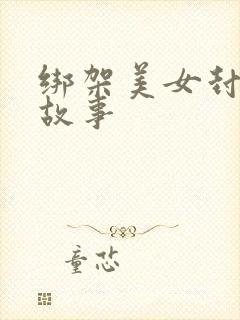 绑架美女封
故事
童恋